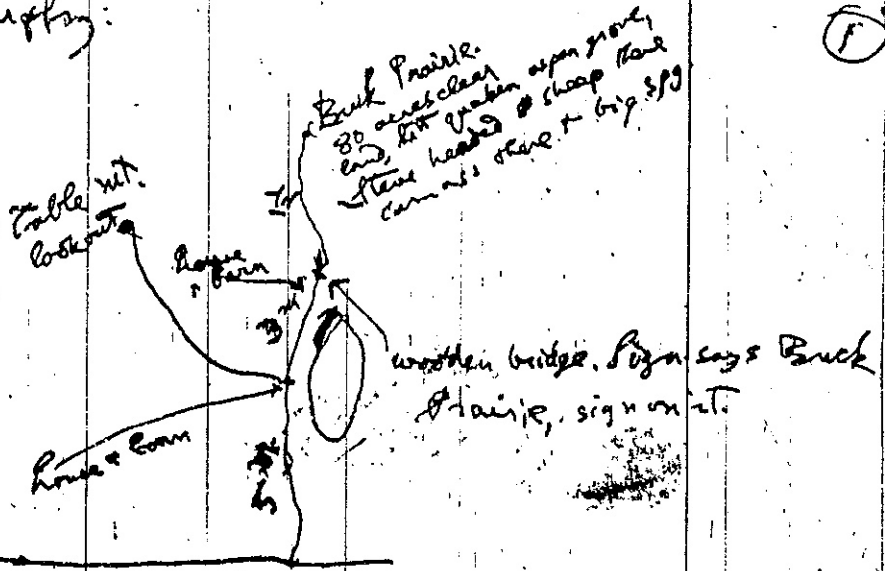 Buck Prairie.
80 acres clear
land, lot quaken aspen grove,
Steve headed sheep there
camass there + big spg
Table mt.
lookout
house
+ barn
wooden bridge. Sign says Buck
Prairie, sign on rt.
house + barn